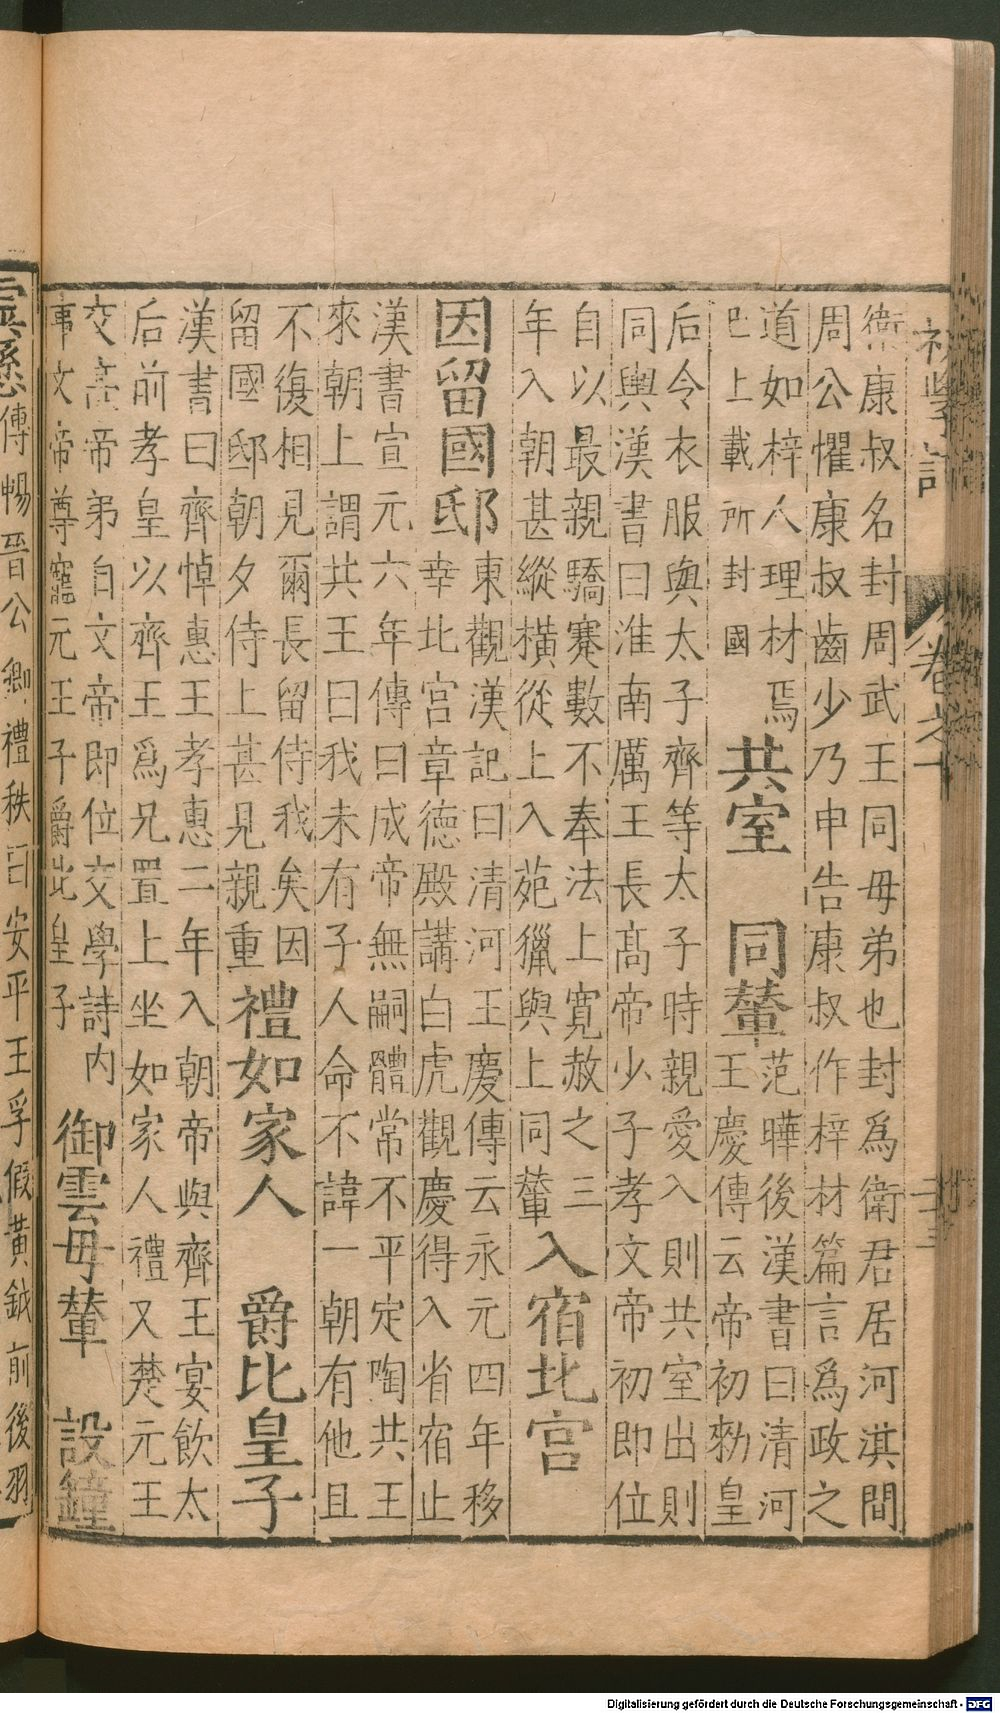 衛康叔名封周武王同母弟也封爲衛君居河淇間
周公懼康叔齒少乃申告康叔作梓材篇言爲政之
道如梓人理材焉
已上載所封國
共室
同輦
范曄後漢書曰清河
王慶傳云帝初勑皇
后令衣服與太子齊等太子時親愛入則共室出則
同輿漢書曰淮南厲王長高帝少子孝文帝初即位
自以最親驕蹇數不奉法上寬赦之三
年入朝甚縱橫從上入苑獵與上同輦
入宿北宮
因留國邸
東觀漢記曰清河王慶傳云永元四年移
幸北宮章德殿講白虎觀慶得入省宿止
漢書宣元六年傳曰成帝無嗣體常不平定陶共王
來朝上謂共王曰我未有子人命不諱一朝有他且
不復相見爾長留侍我矣因
留國邸朝夕侍上甚見親重
禮如家人
爵比皇子
漢書曰齊悼惠王孝惠二年入朝帝與齊王宴飲太
后前孝皇以齊王爲兄置上坐如家人禮又楚元王
交高帝弟自文帝即位交學詩內
事文帝尊寵元王子爵比皇子
御雲母輦
設鐘
傅暢晉公卿禮秩曰安平王孚假黃鉞前後羽
初學記
卷之
Digitalisierung gefördert durch die Deutsche Forschungsgemeinschaft - DFG